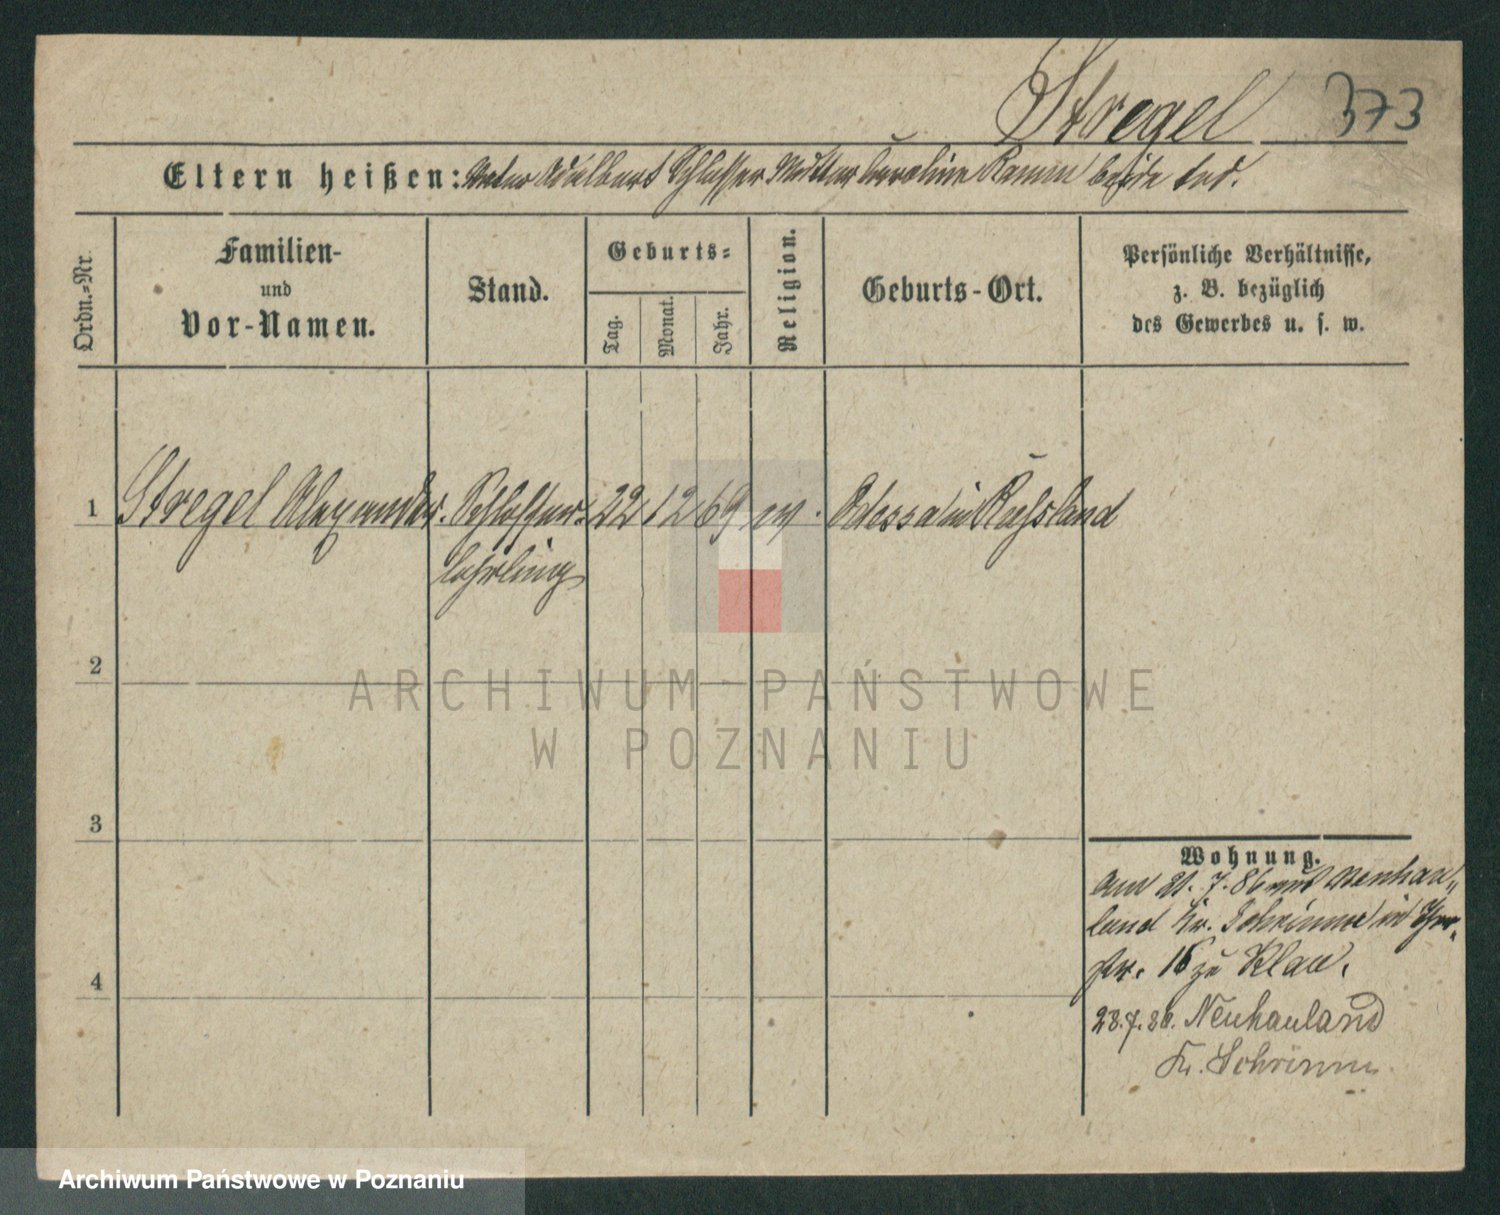 Stregel 373
Eltern heißen: Vater Adalbert Schlosser Mutter Caroline Ramm beide tod.
Ordn.-Nr.
Familien-
und
Vor-Namen.
Stand.
Geburts-
Tag.
Monat.
Jahr.
Religion.
Geburts-Ort.
Persönliche Verhältnisse,
z. B. bezüglich
des Gewerbes u. s. w.
1 Stregel Alexander. Schlosser- 22 12 69 ev. Odessa in Rußland
lehrling
2
ARCHIWUM PAŃSTWOWE
W POZNANIU
3
4
Wohnung.
am 21. 7. 86 aus Neuhau-
land Kr. Schrimm in
str. 16 zu
28.7.86. Neuhauland
Kr. Schrimm
Archiwum Państwowe w Poznaniu